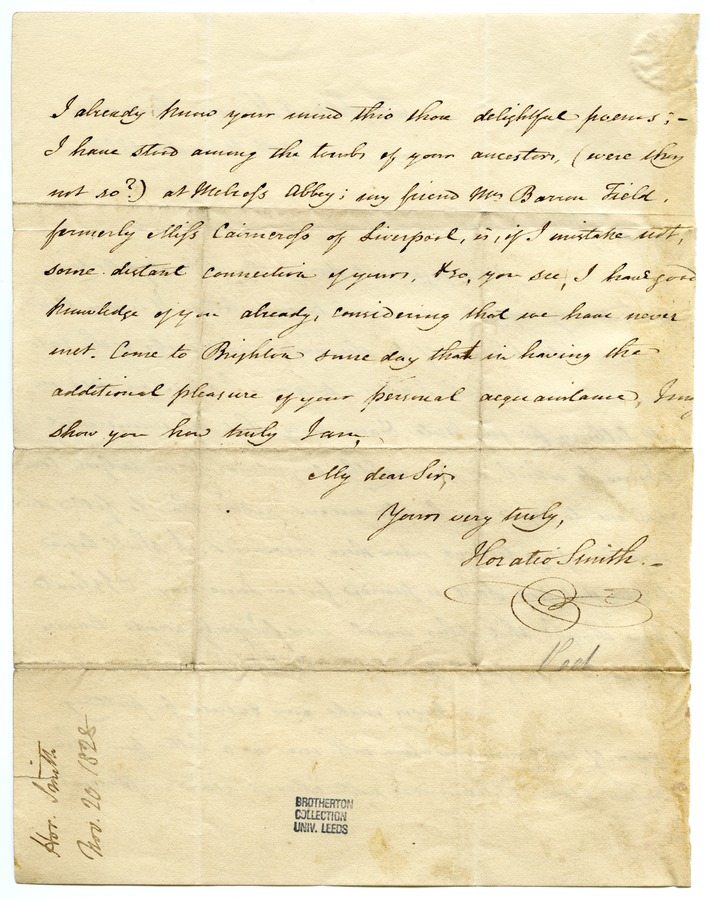 I already know your mind thro those delightful poems;-
I have stood among the tombs of your ancestors, (were they
not so?) at Melross Abbey; my friend Mrs Barron Field,
formerly Miss Cairncross of Liverpool, is, if I mistake not,
some distant connection of yours, & so, you see, I have good
knowledge of you already, considering that we have never
met. Come to Brighton some day that in having the
additional pleasure of your personal acquaintance, I may
show you how truly I am,
My dear Sir,
Yours very truly,
Horatio Smith.-
Hor. Smith
Nov. 20. 1828
BROTHERTON
COLLECTION
UNIV. LEEDS